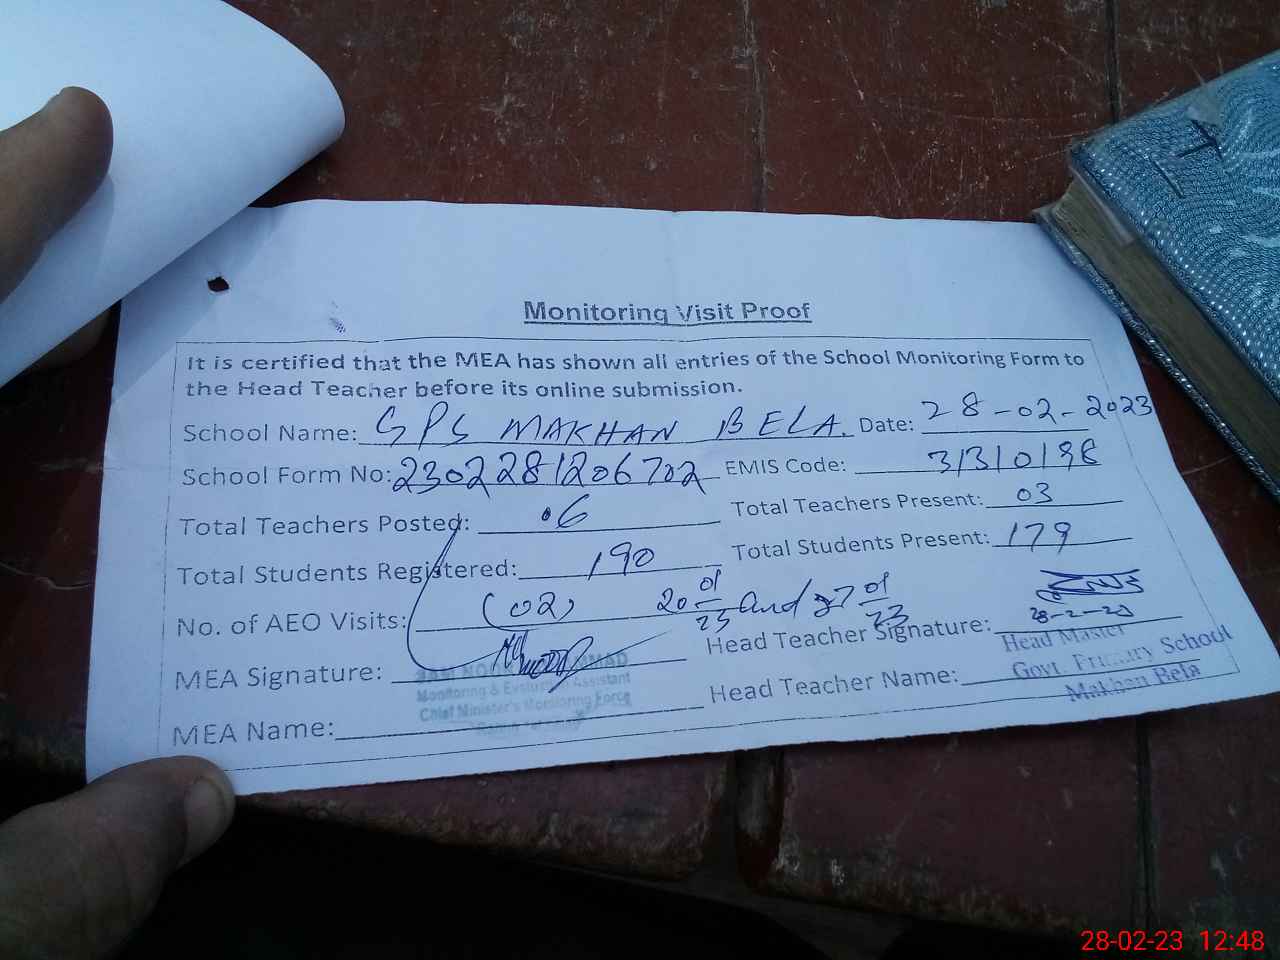 Monitoring Visit Proof
It is certified that the MEA has shown all entries of the School Monitoring Form to
the Head Teacher before its online submission.
School Name: GPS MAKHAN BELA. Date: 28-02-2023
School Form No: 2302281206702 EMIS Code: 31310198
Total Teachers Posted: 06 Total Teachers Present: 03
Total Students Registered: 190 Total Students Present: 179
No. of AEO Visits: (02) 20 01/23 and 27 01/23
MEA Signature: Head Teacher Signature: 28-2-23
Monitoring & Evaluation Assistant
Chief Minister's Monitoring Force
MEA Name: Head Teacher Name:
Head Master
Govt. Primary School
Makhan Bela
28-02-23 12:48